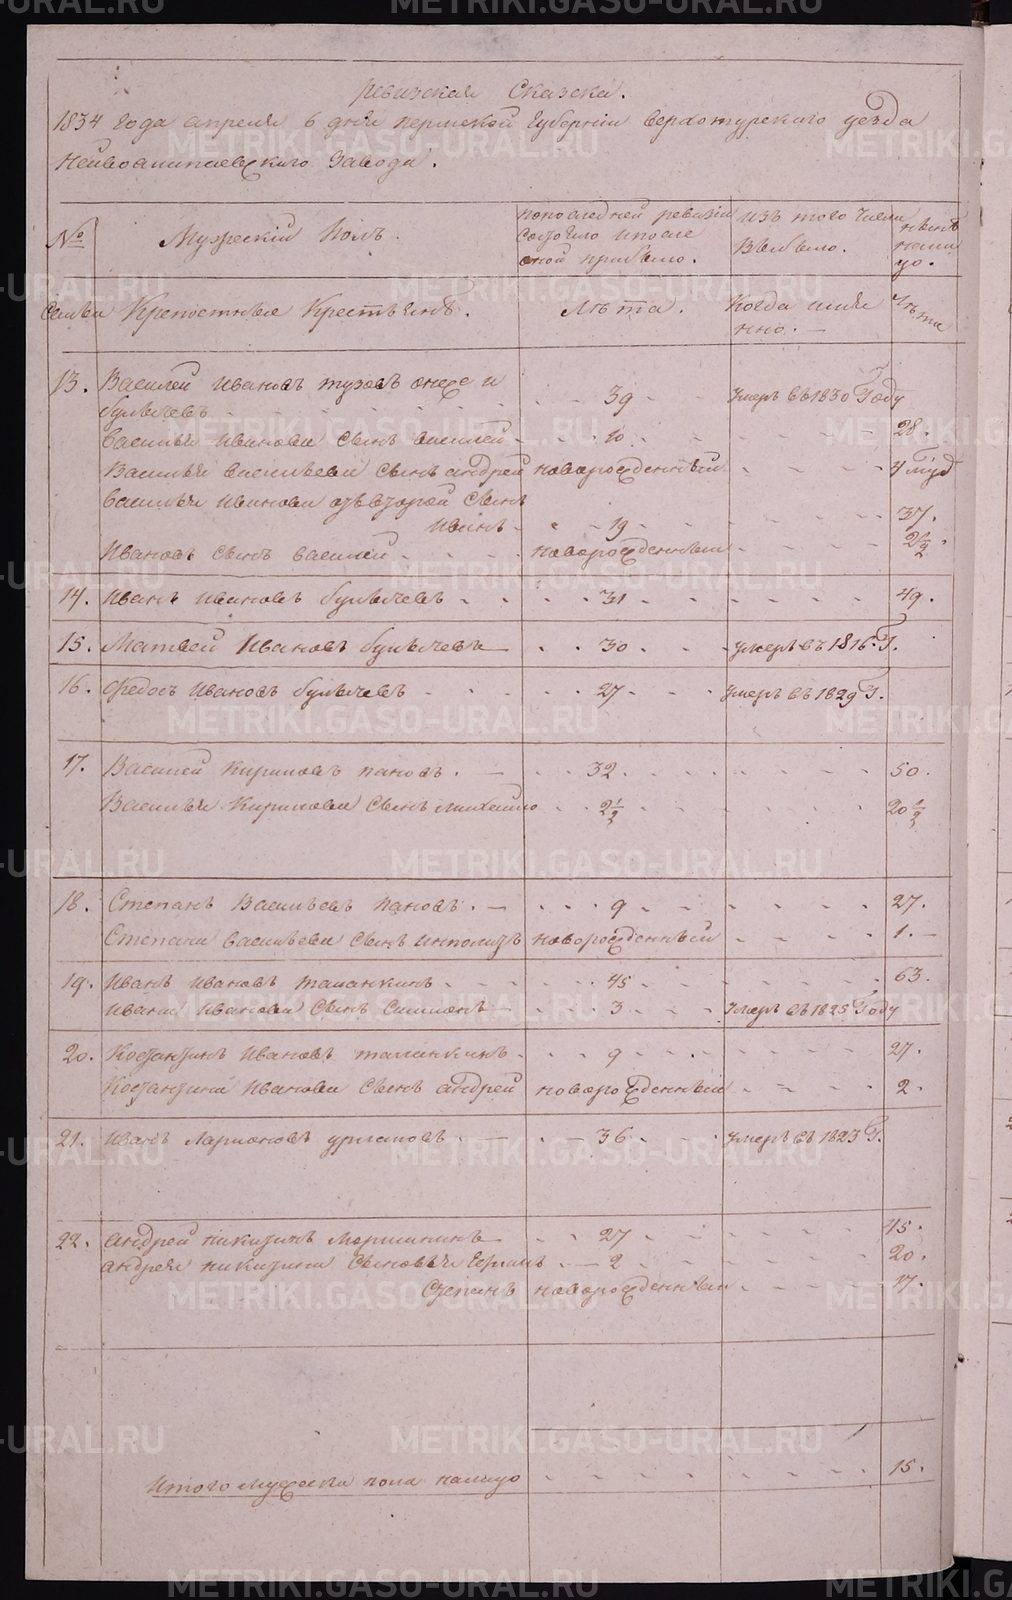 Ревизская Сказска.
1834 года апреля 6 дня пермской Губернiи верхотурского уезда
Нейвоалапаевского Завода.
№ Мужескiй Полъ. попоследней ревизiи состояло и после оной прибыло. изъ того числа Выбыло. нынѣ налицо.
Семьи Крепостные Крестьянѣ. Лѣта. Когда имянно. Лѣта
13. Василей Ивановъ тузовъ онже и
булычевъ 39 умеръ въ 1830 Году
василья иванова сынъ василей 10 28.
Василья васильева сынъ андрей новорожденный 4 год
василья иванова второй сынъ
иванъ 19 37.
Ивановъ сынъ василей новорожденный 2½
14. Иванъ Ивановъ булычевъ 31 49.
15. Матвей Ивановъ булычевъ 30 умеръ въ 1816. Г.
16. Федосъ Ивановъ булычевъ 27 умеръ въ 1829 Г.
17. Василей Кириловъ пановъ. 32 50.
Василья Кирилова сынъ михайло 2½ 20½
18. Степанъ Васильевъ пановъ. 9 27.
Степана васильева сынъ иполитъ новорожденный 1.
19. Иванъ Ивановъ таланкинъ 45 63.
ивана иванова сынъ симионъ 3 Умеръ въ 1825 Году
20. Костантинъ Ивановъ таланкинъ 9 27.
Костантина Иванова сынъ андрей новорожденный 2.
21. Иванъ Ларионовъ урлаповъ 36 умеръ въ 1823 Г.
22. андрей никитинъ Моршининъ 27 45.
андрея никитина сыновья 2 20.
Степанъ новорожденный 17.
Итого мужеска пола налицо 15.
METRIKI.GASO-URAL.RU